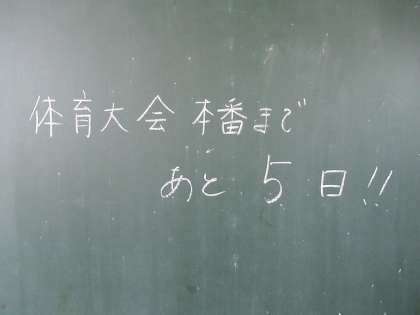 体育大会 本番まで
あと 5 日!!